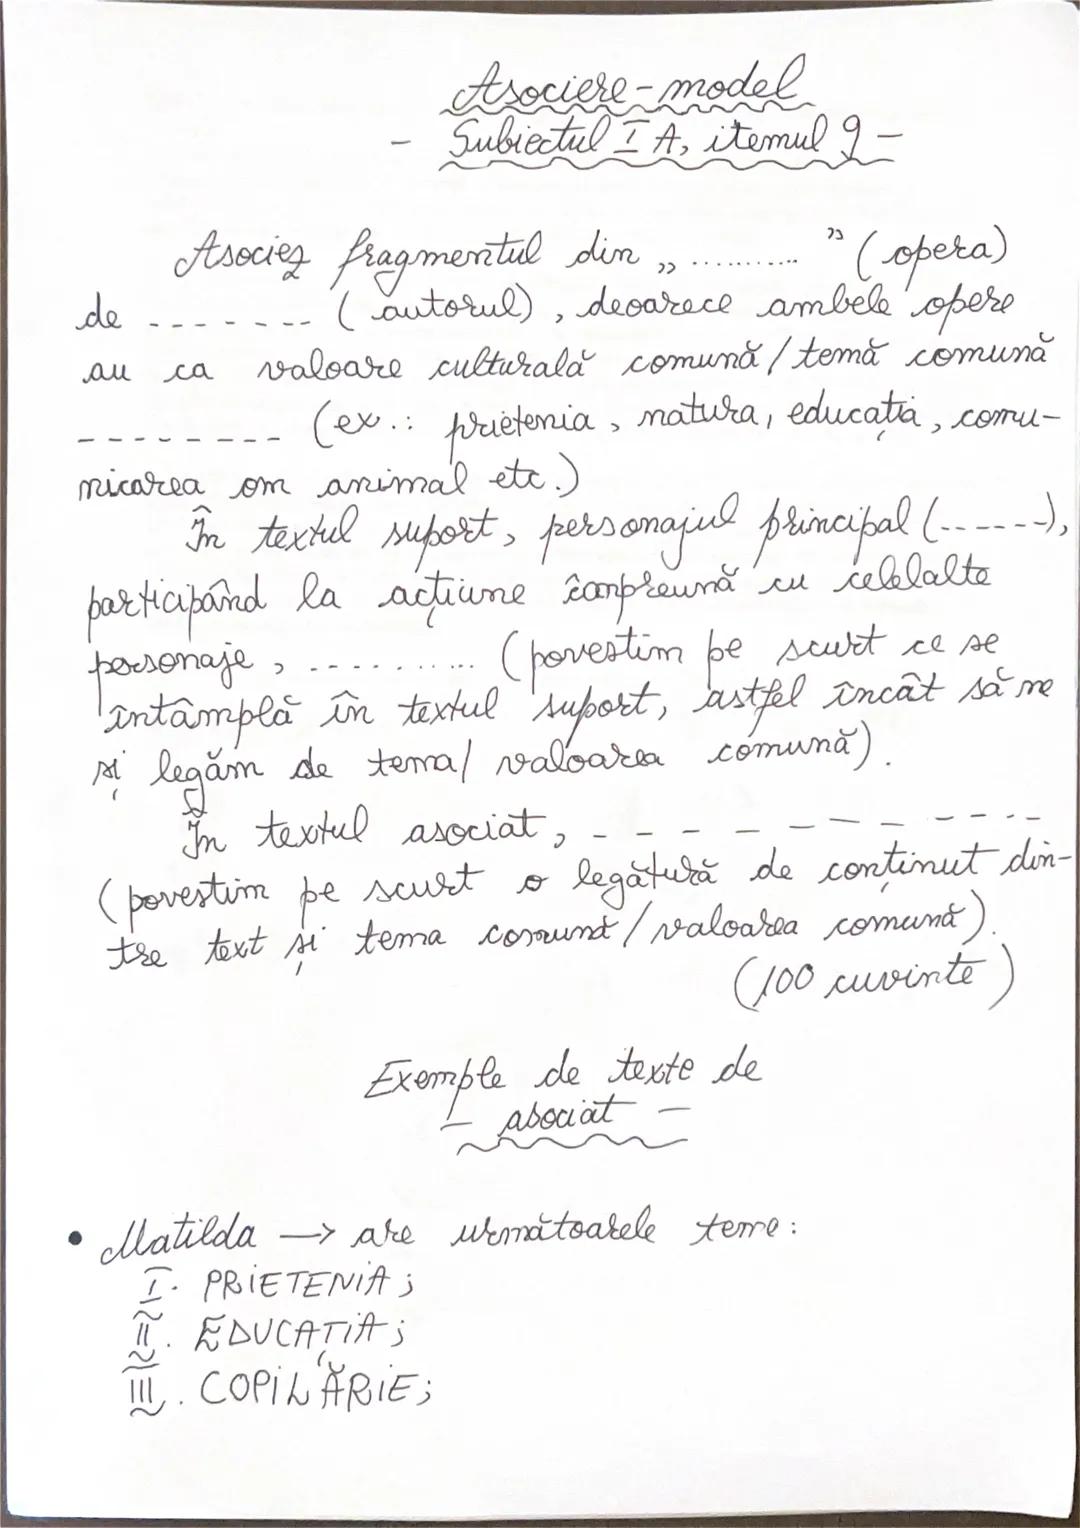 Asociere-model
- Subiectul I A, itemul 9 -
Asociez fragmentul din „ ........... ” (opera)
de - - - - - - -- (autorul), deoarece ambele opere
au ca valoare culturală comună/temă comună
- - - - - - - - (ex.: prietenia, natura, educația, comu-
nicarea om animal etc.)
În textul suport, personajul principal (------),
participând la acțiune împreună cu celelalte
personaje, - - - - - - - - ... (povestim pe scurt ce se
întâmplă în textul suport, astfel încât să ne
și legăm de tema/ valoarea comună).
În textul asociat, - - - - - - - - - - - -
(povestim pe scurt o legătură de conținut din-
tre text și tema comună/valoarea comună).
(100 cuvinte)
Exemple de texte de
- asociat -
• Matilda → are următoarele teme:
I. PRIETENIA;
II. EDUCAȚIA;
III. COPILĂRIE;